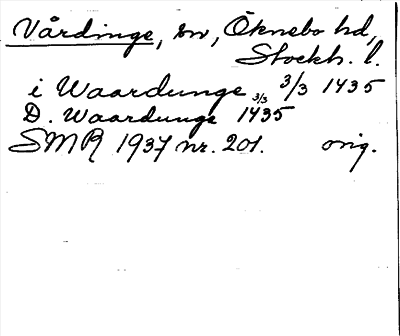 Vårdinge, sn, Öknebo hd,
Stockh. l.
i Waardunge 3/3 1435
D. Waardunge 3/3 1435
SMR 1937 nr. 201. orig.